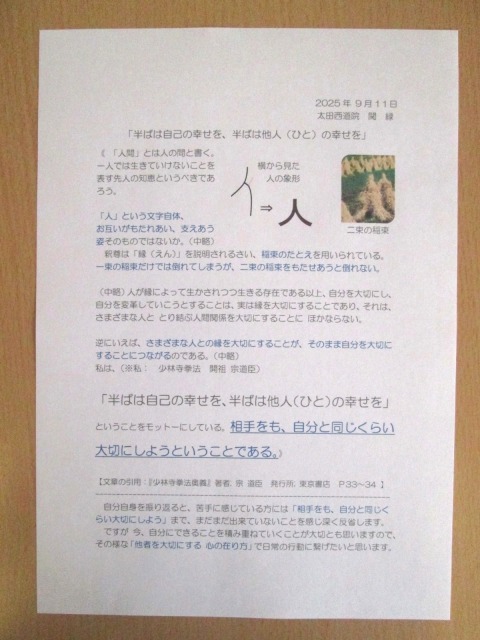 2025年 9月11日
太田西道院 関 緑
「半ばは自己の幸せを、半ばは他人（ひと）の幸せを」
《 「人間」とは人の間と書く。
一人では生きていけないことを
表す先人の知恵というべきであ
ろう。
横から見た
人の象形
⇒
人
二束の稲束
「人」という文字自体、
お互いがもたれあい、支えあう
姿そのものではないか。（中略）
釈尊は「縁（えん）」を説明されるさい、稲束のたとえを用いられている。
一束の稲束だけでは倒れてしまうが、二束の稲束をもたせあうと倒れない。
（中略）人が縁によって生かされつつ生きる存在である以上、自分を大切にし、
自分を変革していこうとすることは、実は縁を大切にすることであり、それは、
さまざまな人と とり結ぶ人間関係を大切にすることに ほかならない。
逆にいえば、さまざまな人との縁を大切にすることが、そのまま自分を大切に
することにつながるのである。（中略）
私は、（※私： 少林寺拳法 開祖 宗道臣）
「半ばは自己の幸せを、半ばは他人（ひと）の幸せを」
ということをモットーにしている。相手をも、自分と同じくらい
大切にしようということである。》
【文章の引用：『少林寺拳法奥義』著者：宗 道臣 発行所：東京書店 P33～34 】
自分自身を振り返ると、苦手に感じている方には「相手をも、自分と同じく
らい大切にしよう」まで、まだまだ出来ていないことを感じ深く反省します。
ですが 今、自分にできることを積み重ねていくことが大切とも思いますので、
その様な「他者を大切にする 心の在り方」で日常の行動に繋げたいと思います。